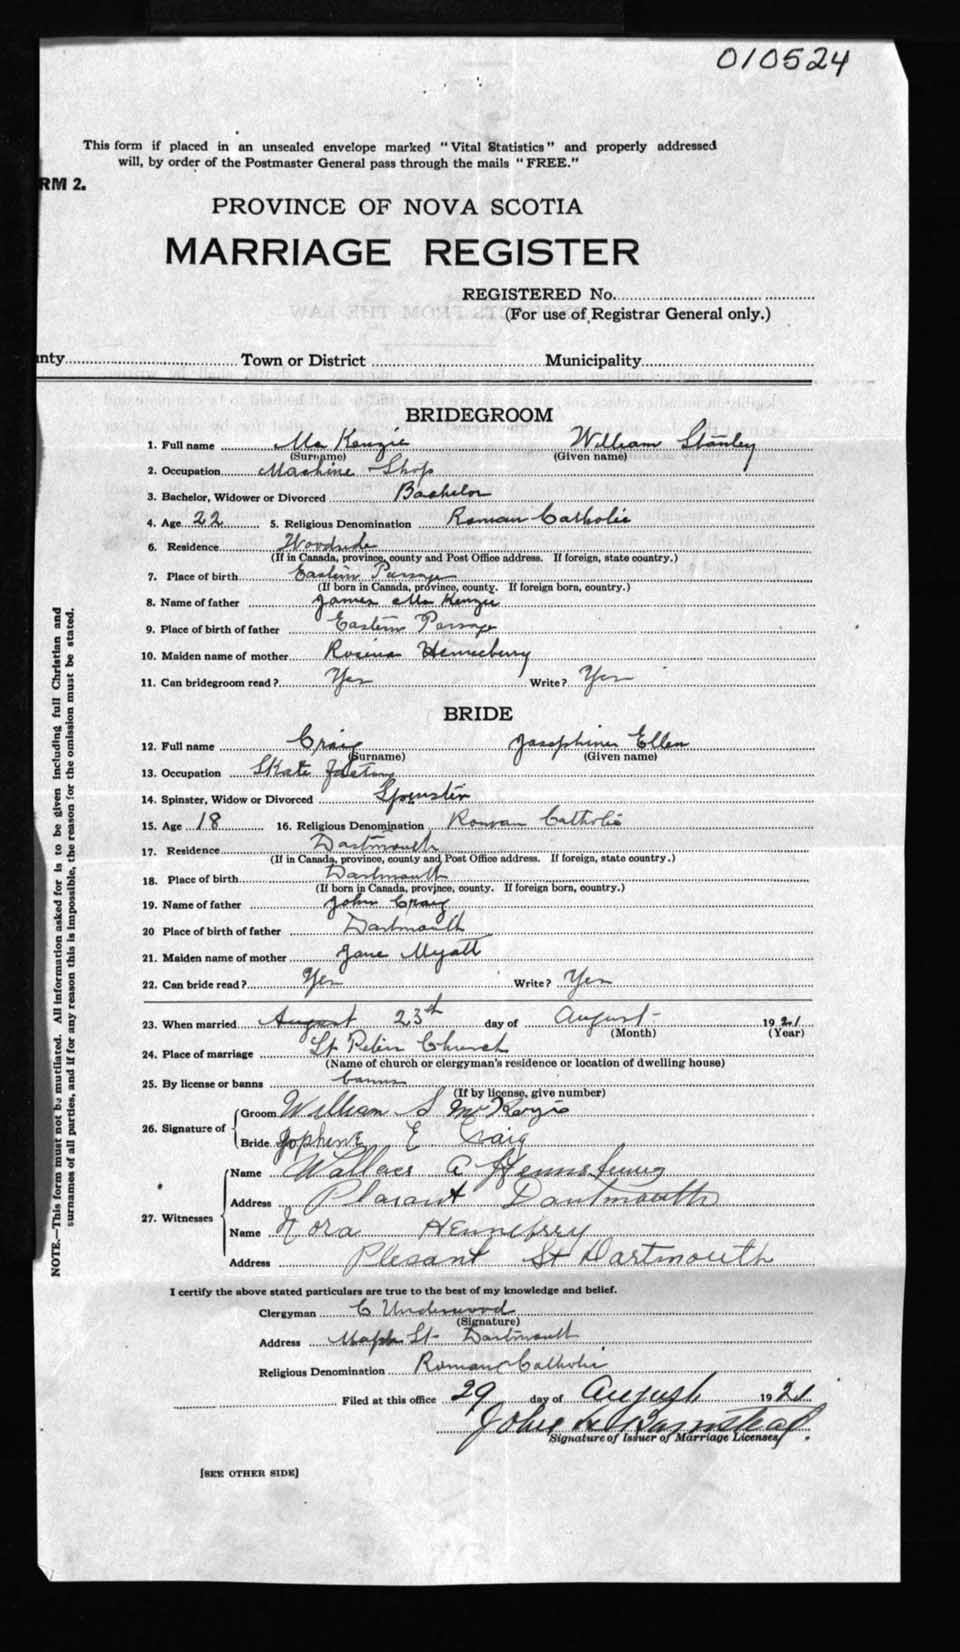 010524
This form if placed in an unsealed envelope marked "Vital Statistics" and properly addressed
will, by order of the Postmaster General pass through the mails "FREE."
RM 2.
PROVINCE OF NOVA SCOTIA
MARRIAGE REGISTER
REGISTERED No.
(For use of Registrar General only.)
nty Town or District Municipality
BRIDEGROOM
1. Full name Mc Kenzie William Stanley
(Surname) (Given name)
2. Occupation Machine Shop
3. Bachelor, Widower or Divorced Bachelor
4. Age 22 5. Religious Denomination Roman Catholic
6. Residence Woodside
(If in Canada, province, county and Post Office address. If foreign, state country.)
7. Place of birth Eastern Passage
(If born in Canada, province, county. If foreign born, country.)
8. Name of father James Mc Kenzie
9. Place of birth of father Eastern Passage
10. Maiden name of mother Rosina
11. Can bridegroom read? Yes Write? Yes
BRIDE
12. Full name Craig Josephine Ellen
(Surname) (Given name)
13. Occupation Skate Factory
14. Spinster, Widow or Divorced Spinster
15. Age 18 16. Religious Denomination Roman Catholic
17. Residence Dartmouth
(If in Canada, province, county and Post Office address. If foreign, state country.)
18. Place of birth Dartmouth
(If born in Canada, province, county. If foreign born, country.)
19. Name of father John Craig
20 Place of birth of father Dartmouth
21. Maiden name of mother Jane Myatt
22. Can bride read? Yes Write? Yes
23. When married August 23th day of August 1921
(Month) (Year)
24. Place of marriage St Peters Church
(Name of church or clergyman's residence or location of dwelling house)
25. By license or banns banns
(If by license, give number)
26. Signature of Groom William S McKenzie
Bride E Craig
27. Witnesses Name Wallace A
Address Plasant Dartmouth
Name Nora
Address Plesant St Dartmouth
I certify the above stated particulars are true to the best of my knowledge and belief.
Clergyman C Underwood
(Signature)
Address Maple St Dartmouth
Religious Denomination Roman Catholic
Filed at this office 29 day of August 1921
John
Signature of Issuer of Marriage Licenses
[SEE OTHER SIDE]
NOTE.—This form must not be mutilated. All information asked for is to be given including full Christian and
surnames of all parties, and if for any reason this is impossible, the reason for the omission must be stated.